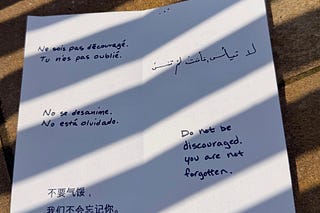 Ne sois pas découragé.
Tu n'es pas oublié.
لا تيأس، فأنت لم تُنسَ
No se desanime.
No está olvidado.
Do not be
discouraged.
you are not
forgotten.
不要气馁，
我们不会忘记你。